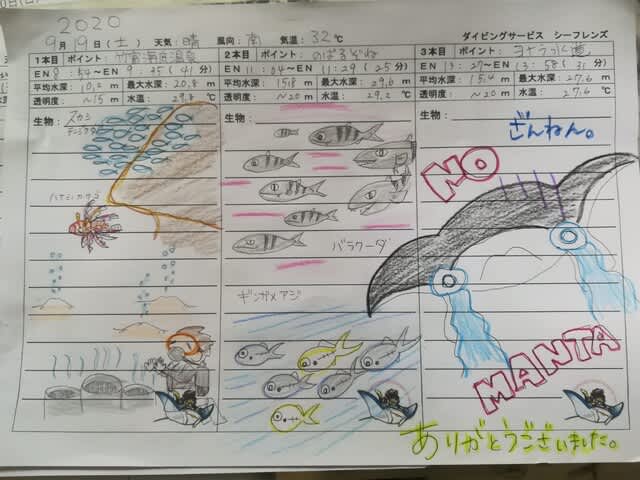 2020
9月19日(土) 天気:晴 風向:南 気温:32℃ ダイビングサービス シーフレンズ
1本目 ポイント: 竹富海底温泉
EN 8:54〜EN 9:35(41分)
平均水深:10.2m 最大水深:20.8m
透明度:~15m 水温:29.8℃
生物:スカシ
テンジクダイ
ハナミノカサゴ
2本目 ポイント:
EN 11:04〜EN 11:29(25分)
平均水深:15.8m 最大水深:29.6m
透明度:~20m 水温:29.2℃
生物:
バラクーダ
ギンガメアジ
3本目 ポイント: ヨナラ水道
EN 13:27〜EN 13:58(31分)
平均水深:15.4m 最大水深:27.6m
透明度:~20m 水温:27.6℃
生物:
ざんねん。
NO
MANTA
ありがとうございました。